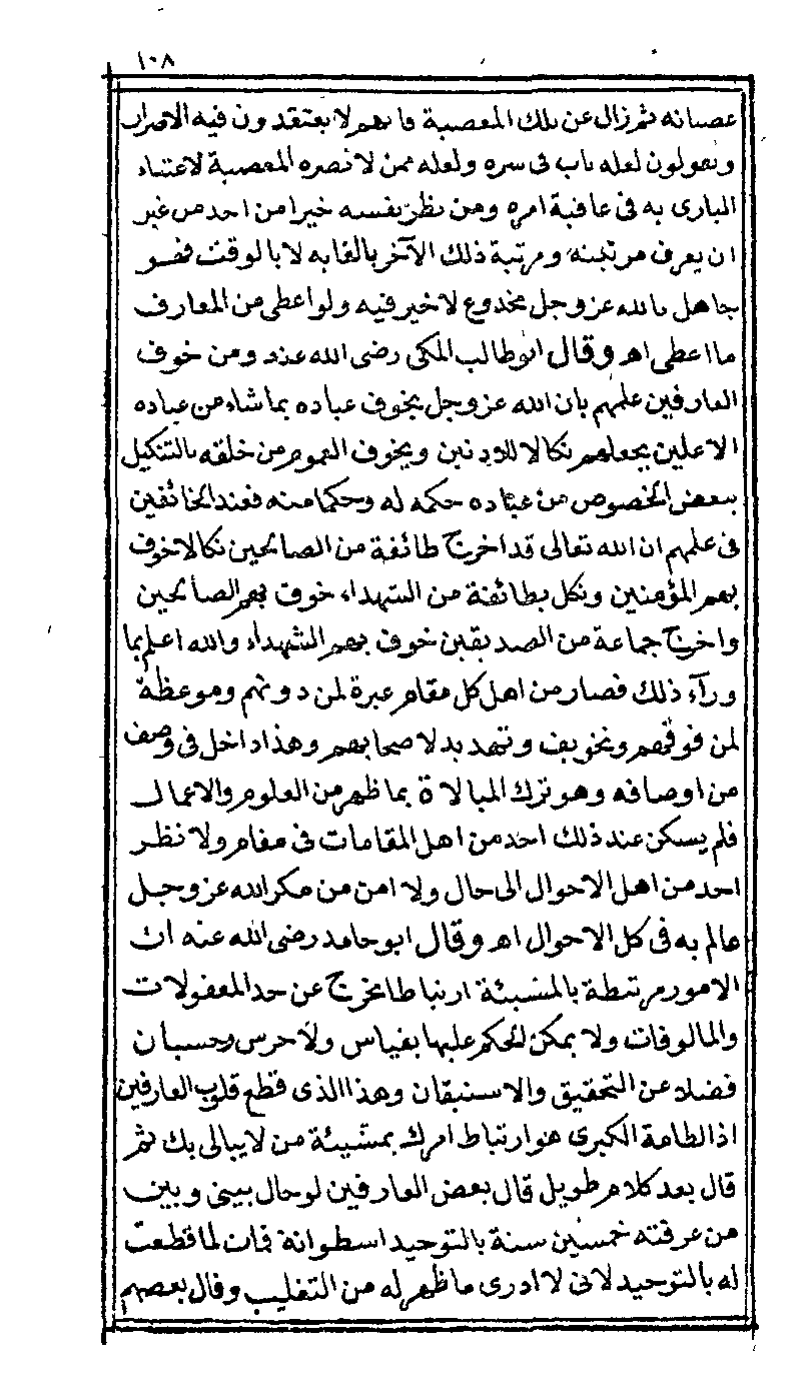 ١٠٨
عصيانه ثم زال عن تلك المعصية فانهم لا يعتقدون فيه الاصرار
ويقولون لعله تاب فى سره ولعله ممن لا تضره المعصية لاعتناء
البارى به فى عاقبة امره ومن نظر نفسه خيرا من احد من غير
ان يعرف مرتبته ومرتبة ذلك الآخر بالغايه لا بالوقت فهو
جاهل بالله عز وجل مخدوع لا خير فيه ولو اعطى من المعارف
ما اعطى اهـ وقال ابو طالب المكى رضى الله عنه ومن خوف
العارفين علمهم بان الله عز وجل يخوف عباده بما شاء من عباده
الاعلين يجعلهم نكالا للادنين ويخوف العموم من خلقه بالتنكيل
ببعض الخصوص من عباده حكمة له وحكما منه فعند الخائفين
فى علمهم ان الله تعالى قد اخرج طائفة من الصالحين نكالا خوف
بهم المؤمنين ونكل بطائفة من الشهداء خوف بهم الصالحين
واخرج جماعة من الصديقين خوف بهم الشهداء والله اعلم بما
ورآء ذلك فصار من اهل كل مقام عبرة لمن دونهم وموعظة
لمن فوقهم وتخويف وتهديد لاصحابهم وهذا داخل فى وصف
من اوصافه وهو ترك المبالاة بما ظهر من العلوم والاعمال
فلم يسكن عند ذلك احد من اهل المقامات فى مقام ولا نظر
احد من اهل الاحوال الى حال ولا امن من مكر الله عز وجل
عالم به فى كل الاحوال اهـ وقال ابو حامد رضى الله عنه ان
الامور مرتبطة بالمشيئة ارتباطا يخرج عن حد المعقولات
والمالوفات ولا يمكن الحكم عليها بقياس ولا حرس وحسبان
فضلا عن التحقيق والاستيقان وهذا الذى قطع قلوب العارفين
اذ الطامة الكبرى هو ارتباط امرك بمشيئة من لا يبالى بك ثم
قال بعد كلام طويل قال بعض العارفين لو حال بينى وبين
من عرفته خمسين سنة بالتوحيد اسطوانة فمات لما قطعت
له بالتوحيد لانى لا ادرى ما ظهر له من التقليب وقال بعضهم